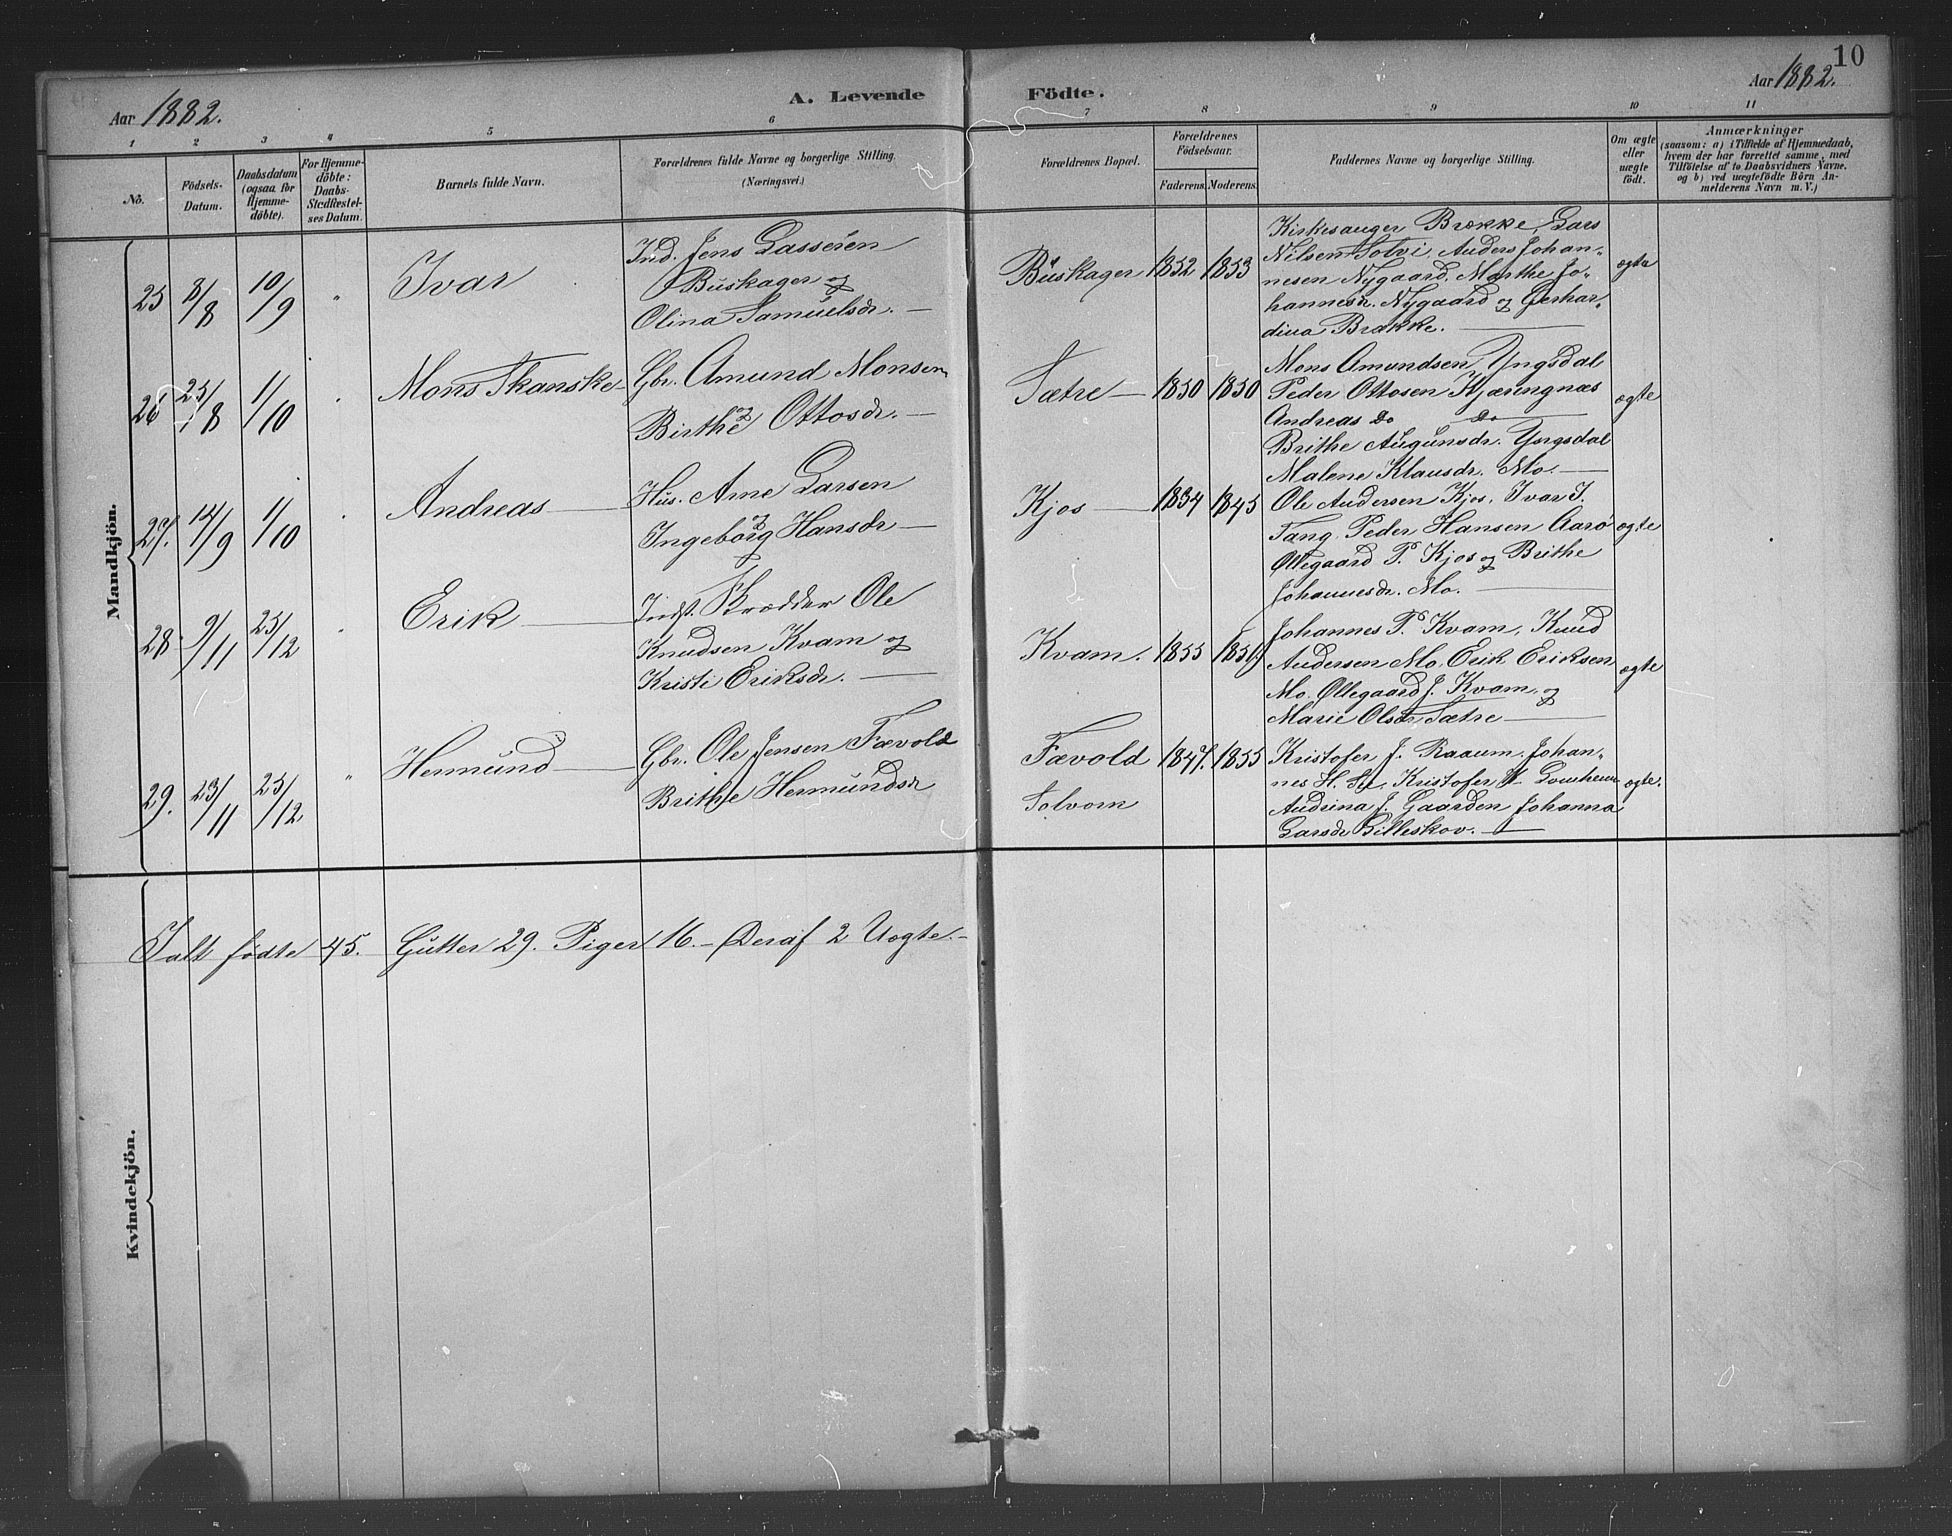 10
Aar 1882.
A. Levende Födte.
Aar 1882.
1 2 3 4 5 6 7 8 9 10 11
No.
Födsels-Datum.
Daabsdatum (ogsaa for Hjemme-döbte).
For Hjemme-döbte: Daabs-Stedfæstel-ses Datum.
Barnets fulde Navn.
Forældrenes fulde Navne og borgerlige Stilling.
(Næringsvei.)
Forældrenes Bopæl.
Forældrenes Födselsaar.
Faderens. Moderens.
Faddernes Navne og borgerlige Stilling.
Om ægte eller uægte födt.
Anmærkninger
(saasom: a) i Tilfælde af Hjemmedaab,
hvem der har forrettet samme, med
Tilföielse af to Daabsvidners Navne.
og b) ved uægtefödte Börn An-
melderens Navn m. V.)
Mandkjön.
25 8/8 10/9 " Ivar
Ind. Jens Lassesen
Buskager og
Olina Samuelsdr.
Buskager 1852 1853
Kirkesanger Brække, Lars
Nilsen Solvi, Anders Johan-
nesen Nygaard, Marthe Jo-
hannesdr. Nygaard og Gerhar-
dina Brække.
ægte
26 25/8 1/10 " Mons Skanske
Gbr. Amund Monsen
og
Birthe Ottosdr.
Sætre 1850 1850
Mons Amundsen Yngsdal
Peder Ottosen Kjæringnæs
Andreas Do Do
Brithe Augunsdr. Yngsdal
Malene Klausdr. Mo.
ægte
27. 14/9 1/10 " Andreas
Hus. Arne Larsen
og
Ingeborg Hansdr
Kjos 1834 1845
Ole Andersen Kjos, Ivar J.
Tang, Peder Hansen Aarø
Øllegaard P. Kjos og Brithe
Johannesdr. Mo.
ægte
28 9/11 25/12 " Erik
Indst. Skrædder Ole
Knudsen Kvam og
Kristi Eriksdr.
Kvam. 1855
Johannes P. Kvam, Knud
Andersen Mo, Erik Eriksen
Mo. Øllegaard J. Kvam, og
Marie Olsdr Sætre
ægte
29. 23/11 25/12 " Hermund
Gbr. Ole Jensen Fævold
Brithe Hermundsdr
Fævold 1847. 1855
Solvorn
Kristofer J. Raaum, Johan-
nes H. Kristofer
Andrina J. Gaarden Johanna
Larsdr Billeskov.
ægte.
Ialt fødte 45. Gutter 29. Piger 16. – Deraf 2 Uægte. –
Kvindekjön.